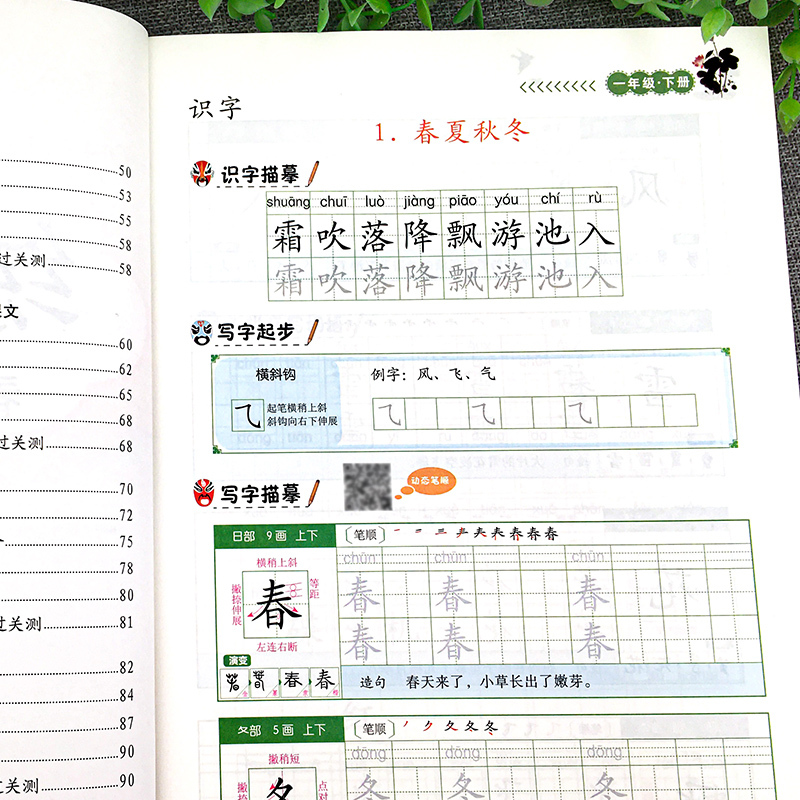 50
53
55
58
过关测 58
课文
60
62
65
68
过关测 68
70
72
75
78
80
过关测 81
82
84
87
90
过关测 90
一年级·下册
识字
1. 春夏秋冬
识字描摹
shuāng chuī luò jiàng piāo yóu chí rù
霜 吹 落 降 飘 游 池 入
霜 吹 落 降 飘 游 池 入
写字起步
横斜钩 例字：风、飞、气
起笔横稍上斜
斜钩向右下伸展
写字描摹
动态笔顺
日部 9画 上下 〔笔顺〕
横稍上斜
撇捺伸展
等距
春
左连右断
chūn chūn chūn
春 春 春
春 春 春
演变
春 春
造句 春天来了，小草长出了嫩芽。
夂部 5画 上下 〔笔顺〕
撇稍短
dōng dōng dōng
冬 冬 冬 冬